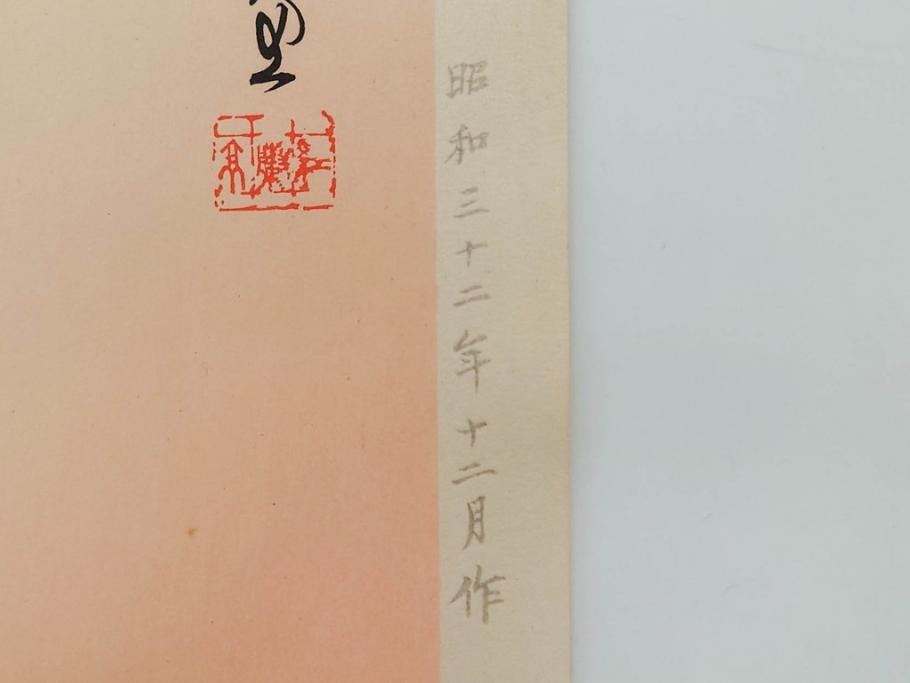 昭和三十二年十二月作